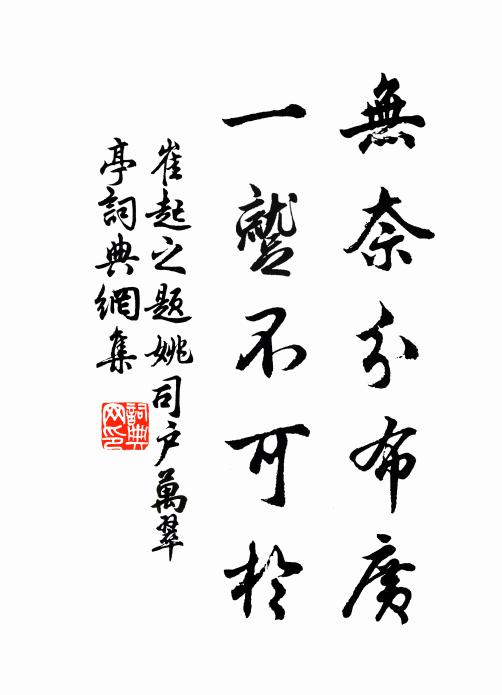 無奈分布廣
一蹔不可於
崔起之题姚司户萬翠
亭詞典網集
詞典
网印